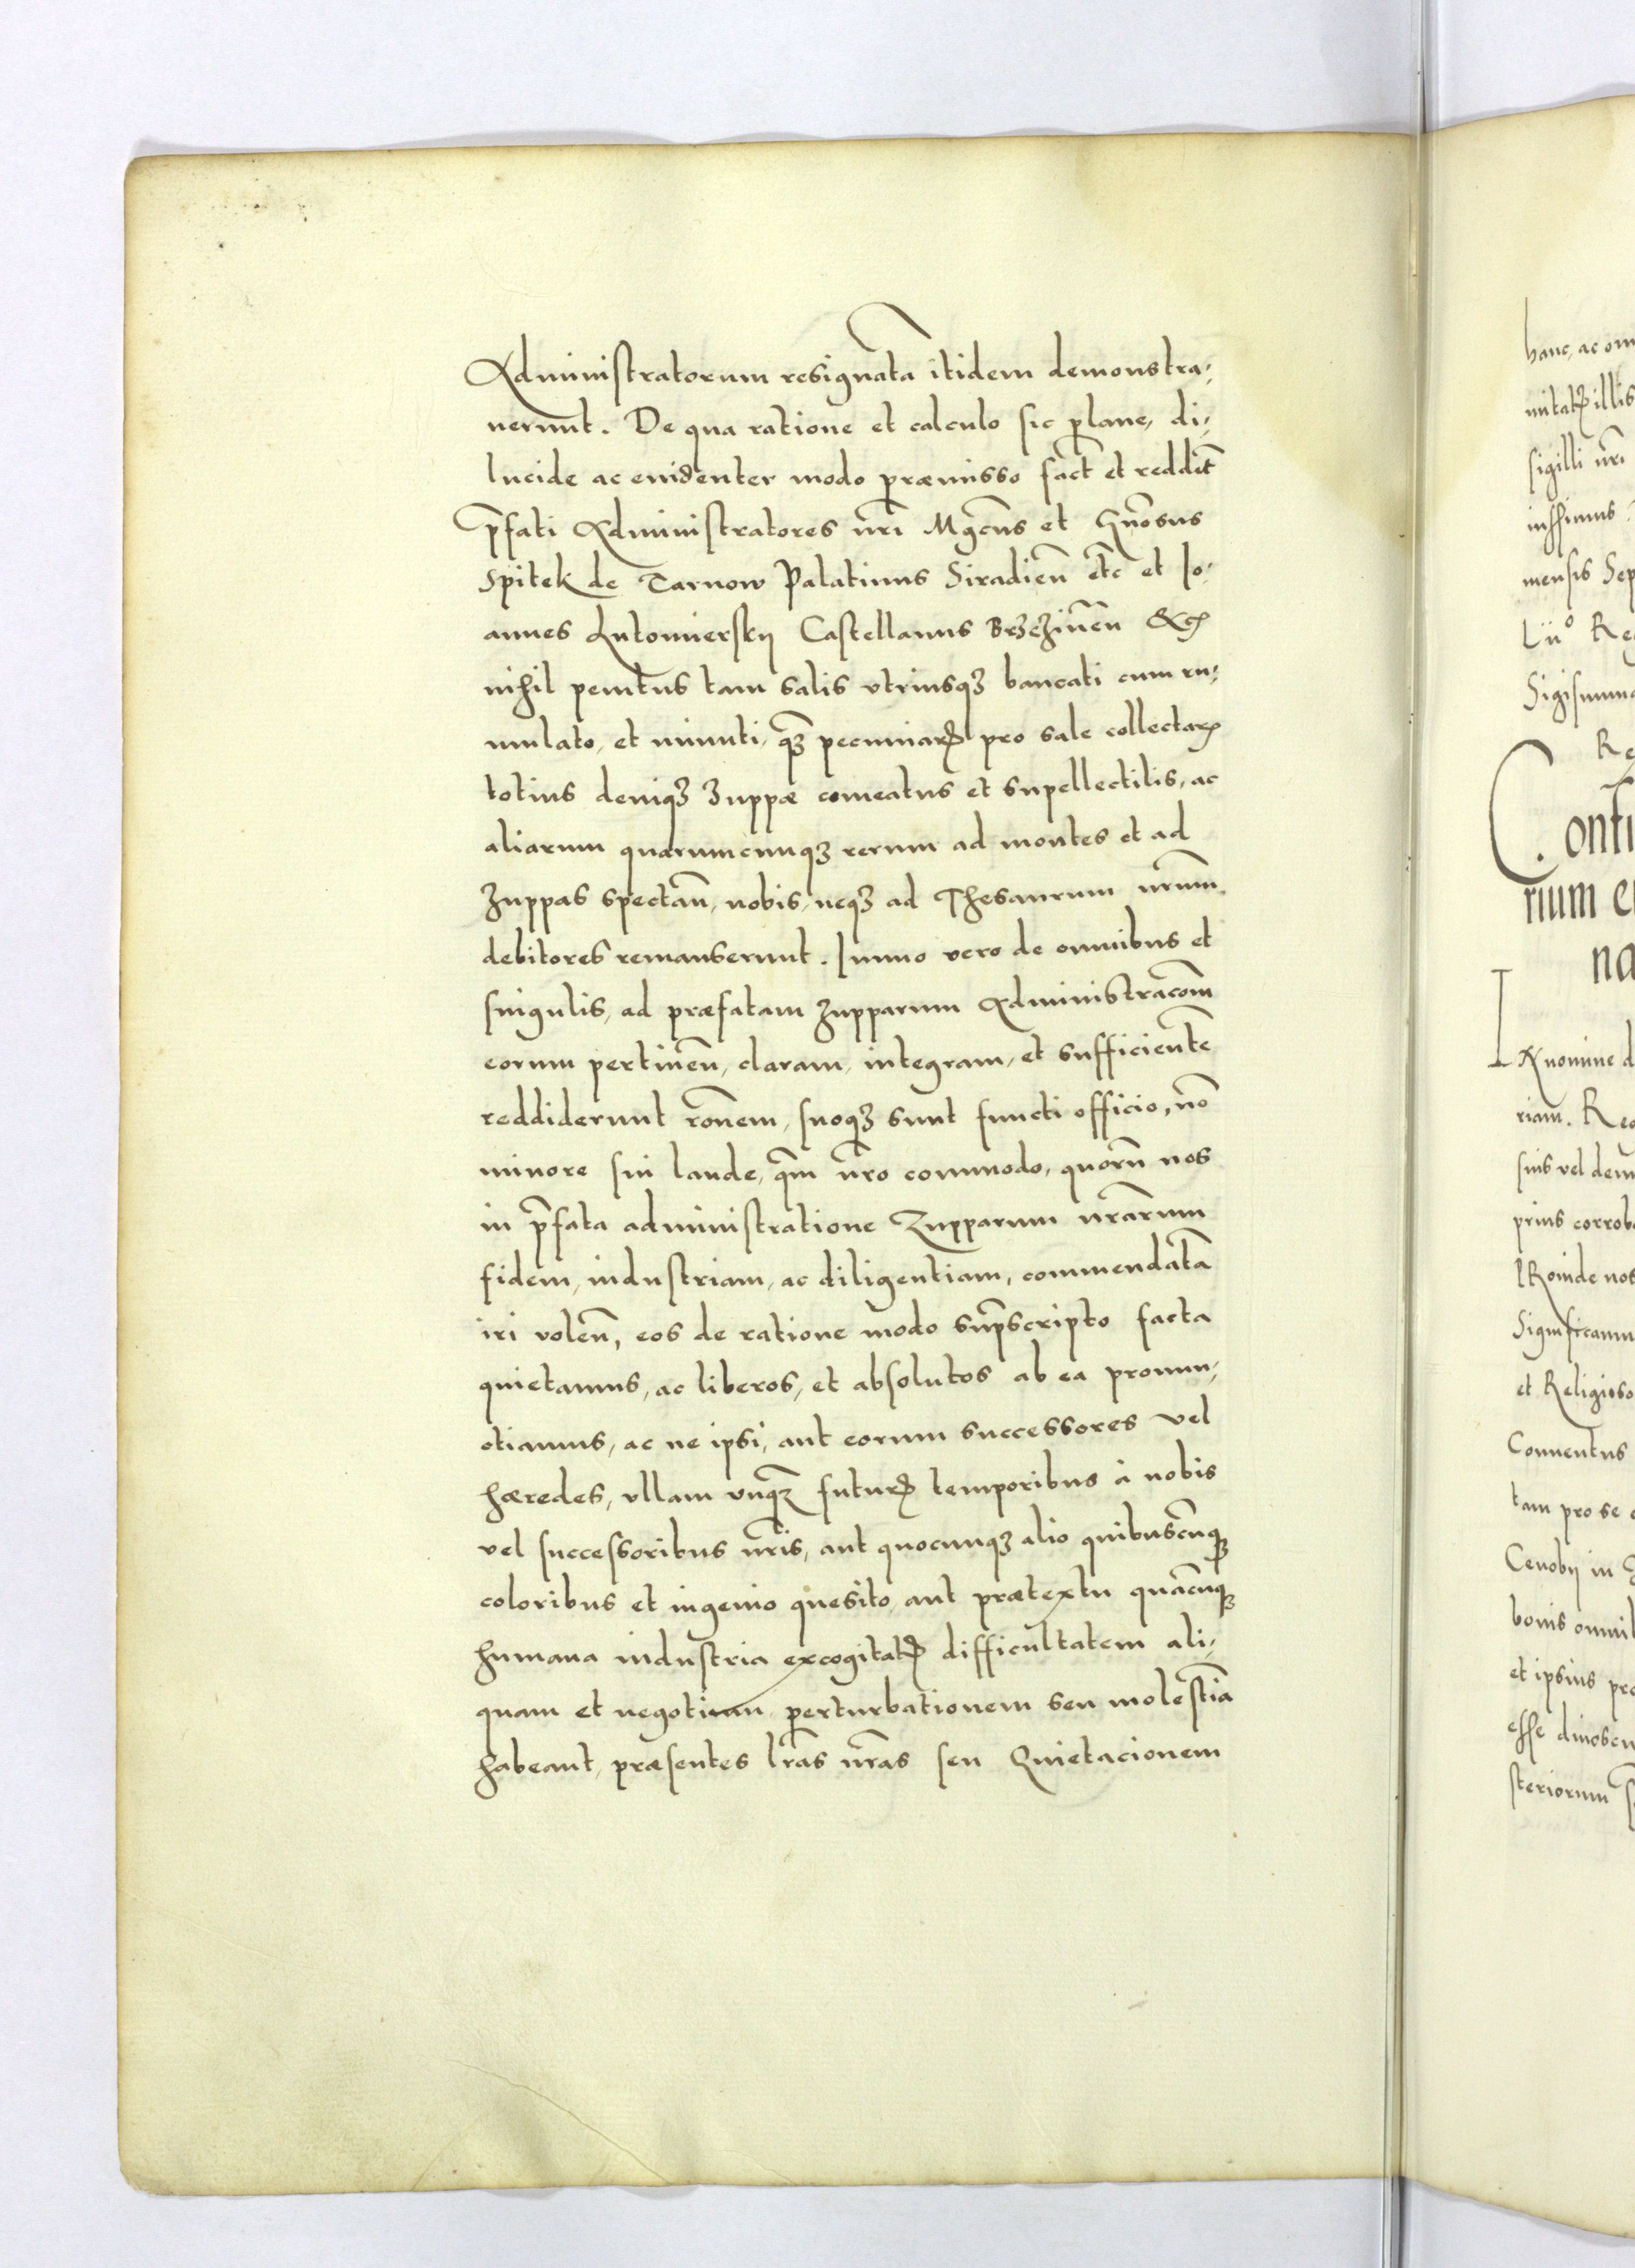 Administratorum resignata itidem demonstra,
uerunt. De qua ratione et calculo sic plane, di,
lucide ac euidenter modo præmisso fact̃ et reddit̃
p̃fati Administratores nr̃i Mgc̃us et Gn̄osus
Spitek de Tarnow Palatinus Siradien̄ etc̄ et Jo,
annes Lutomierskij Castellanus Brzeziñen̄ &c
nihil penitus tam salis vtriusqꝫ bancati cum ru,
mulato, et minuti, qꝫ pecuniarꝝ pro sale collectarꝝ
totius deniqꝫ zuppæ comeatus et supellectilis, ac
aliarum quarumcunqꝫ rerum ad montes et ad
zuppas spectan̄, nobis, neqꝫ ad Thesaurum nr̃um
debitores remanserunt. Immo vero de omnibus et
singulis, ad præfatam zupparum Administrac̃om̃
eorum pertinen̄, claram, integram, et sufficientẽ
reddiderunt rõnem, suoqꝫ sunt functi officio, nõ
minore sui laude, qm̃ nr̃o commodo, quorũ nos
in p̃fata administratione Zupparum nr̃arum
fidem, industriam, ac diligentiam, commendatã
iri volen̄, eos de ratione modo sup̃scripto facta
quietamus, ac liberos, et absolutos ab ea pronun,
ctiamus, ac ne ipsi, aut eorum successores vel
hæredes, vllam vnqꝫ futurꝝ temporibus à nobis
vel successoribus nr̃is, aut quocunqꝫ alio quibuscũqꝫ
coloribus et ingenio quesito, aut prætextu quacũqꝫ
humana industria excogitatꝝ difficultatem ali,
quam et negotium perturbationem seu molestiã
habeant, præsentes lr̃as nr̃as seu Quietacionem
hanc, ac om
mitatꝝ illis
sigilli nr̃i
iussimus
mensis Sep
Lii° Reg
Sigismun
Re
Confi
rium e
na
IN nomine d
riam. Reg
suis vel dem
prius corrob
PRoinde nos
Significam
et Religioso
Conuentus
tam pro se
Cenobij in
bonis omni
et ipsius pre
esse dinoscu
steriorum